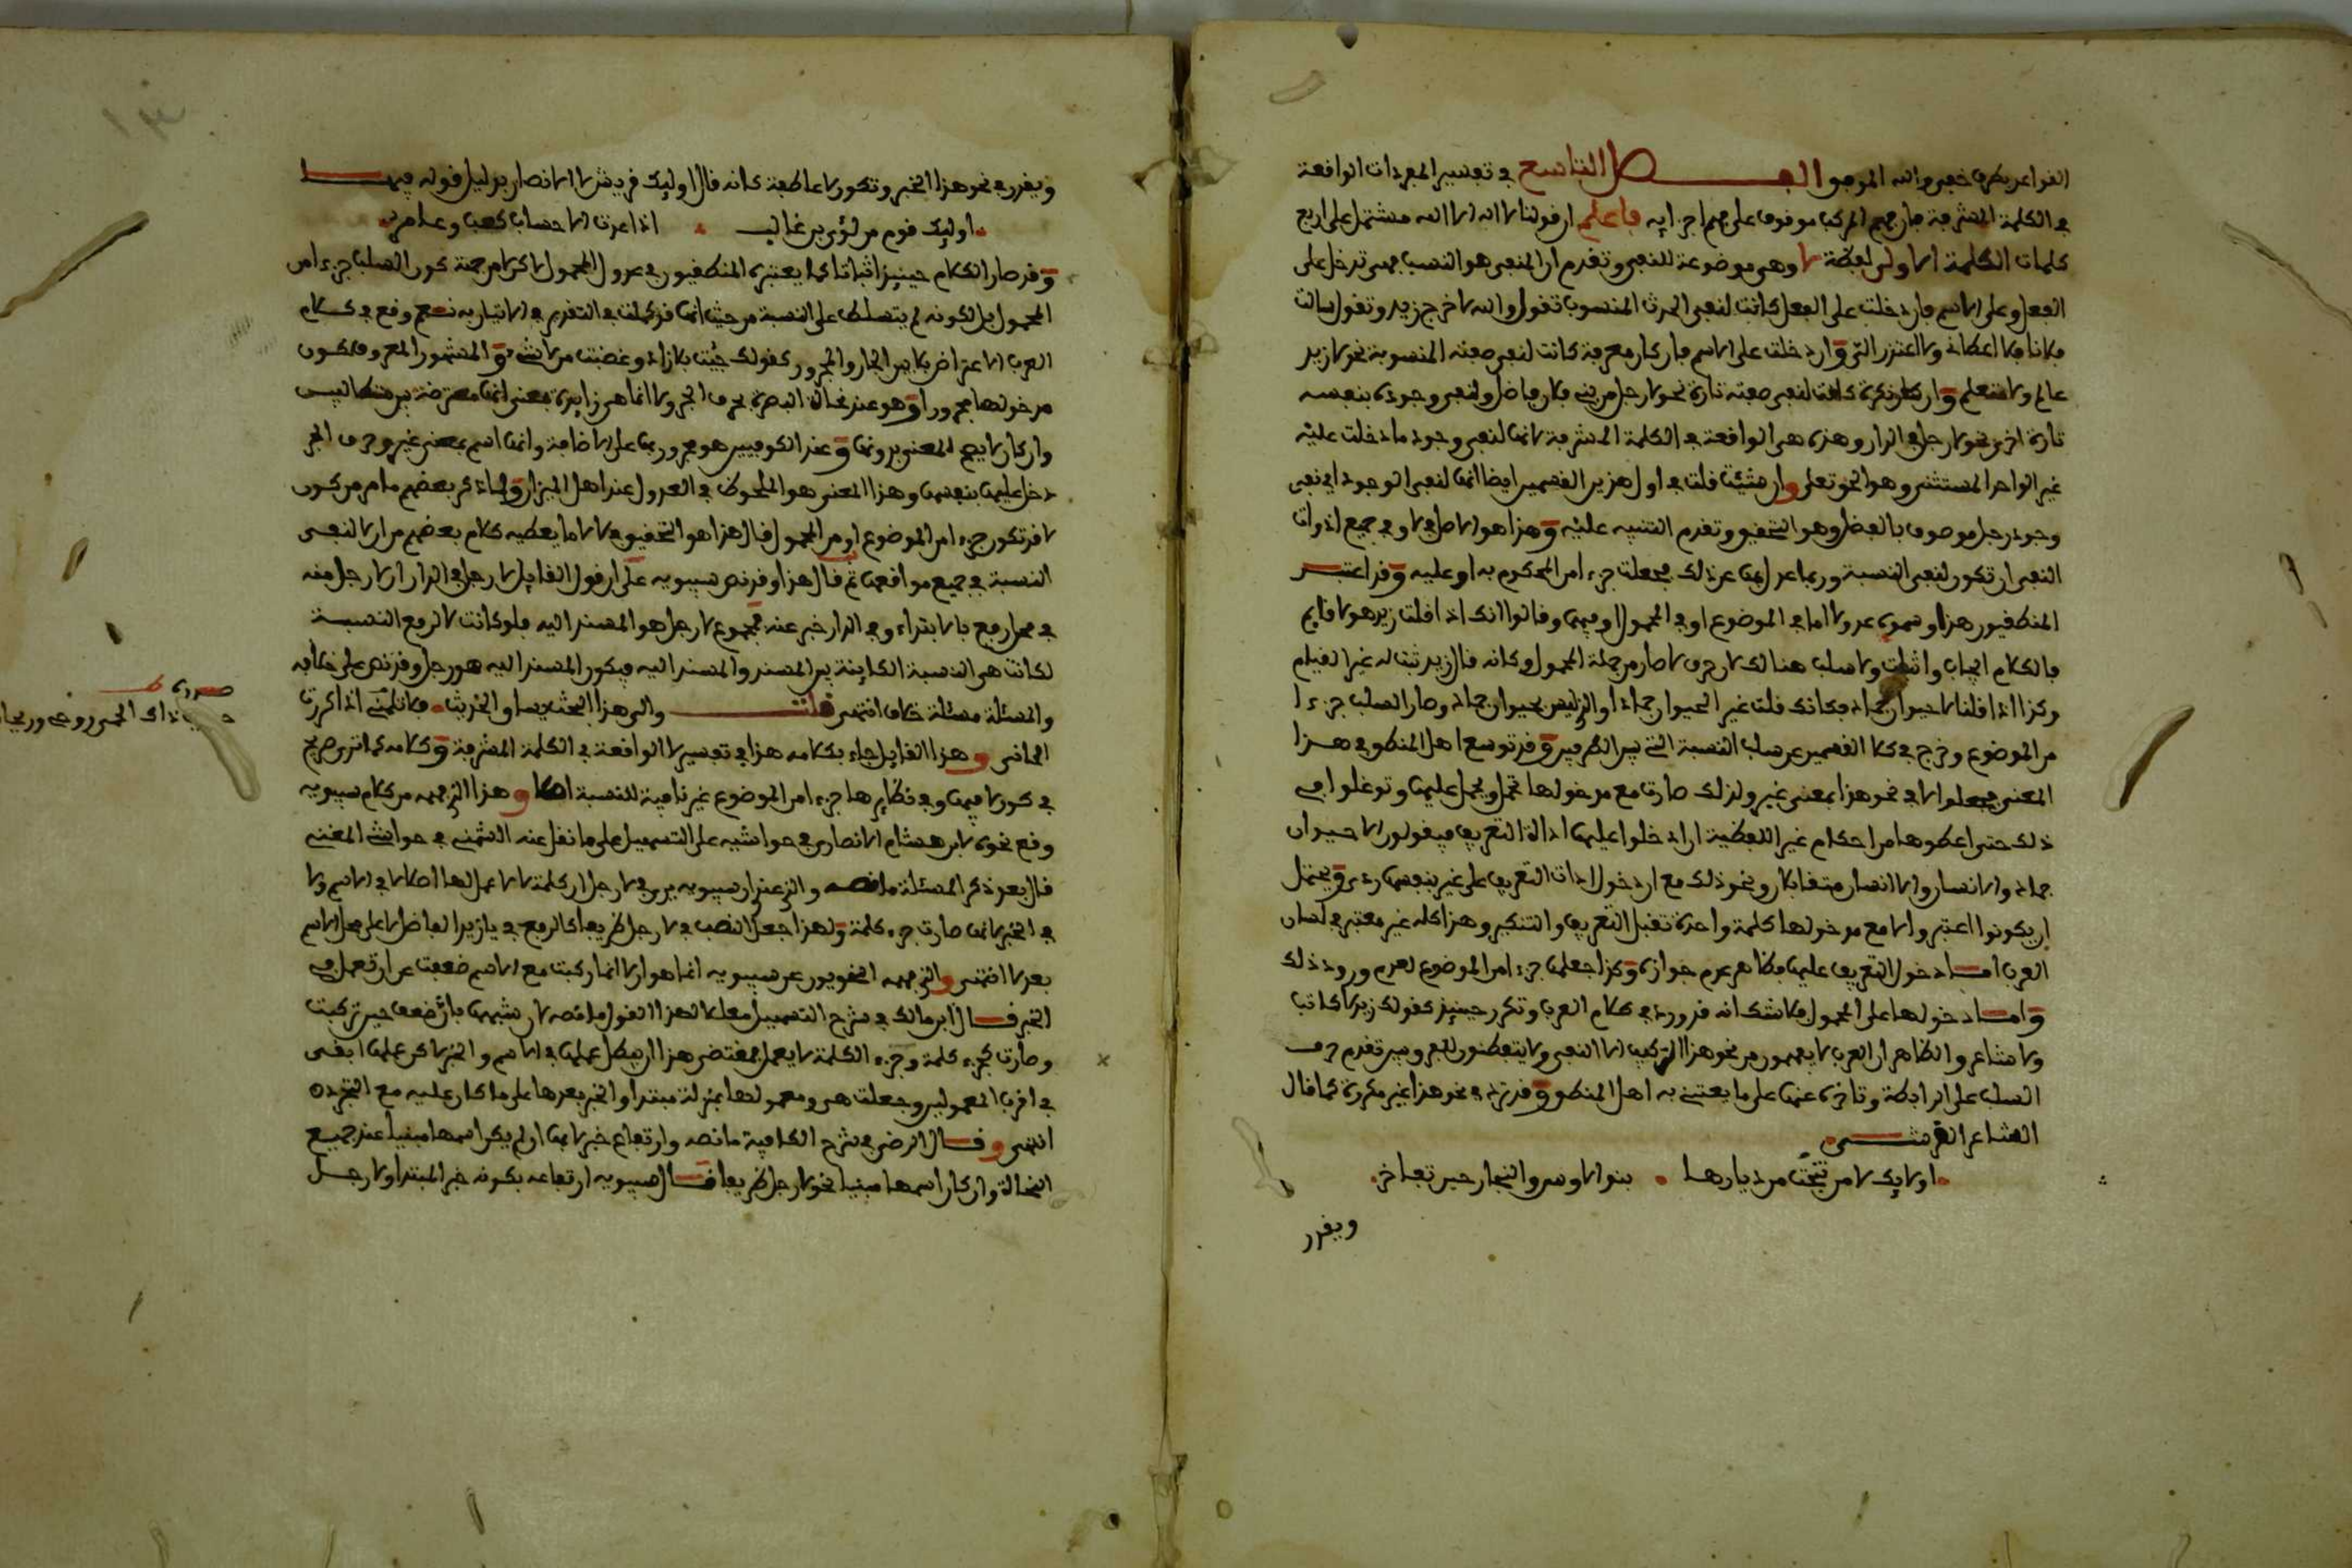 القواعد بطرف خفي والله الموفق الفصل التاسع في تفسير المفردات الواقعة
في الكلمة المشرفة فإن فهم المركب موقوف على فهم أجزايه فاعلم أن قولنا لا إله إلا الله مشتمل على أربع
كلمات الكلمة الأولى لفظة لا وهي موضوعة للنفي وتقدم أن المنفي هو النسب فهي تدخل على
الفعل وعلى الاسم فإن دخلت على الفعل كانت لنفي الحدث المنسوب تقول والله لا خرج زيد وتقول سالت
فلانا فلا أعطاني ولا اعتذر إلي وإن دخلت على الاسم فإن كان معرفة كانت لنفي صفته المنسوبة نحو لا زيد
عالم ولا متعلم وإن كان نكرة كانت لنفي صفته تارة نحو لا رجل من بني فلان فاضل ولنفي وجوده بنفسه
تارة أخرى نحو لا رجل في الدار وهذه هي الواقعة في الكلمة المشرفة لأنها لنفي وجود ما دخلت عليه
غير الواحد المستثنى وهو الحق تعلى وإن شئت قلت في أول هذين القسمين أيضا إنها لنفي الوجود أي نفي
وجود رجل موصوف بالفضل وهو التحقيق وتقدم التنبيه عليه وهذا هو الأصل في لا وفي جميع أدوات
النفي أن تكون لنفي النسبة وربما عدل بها عن ذلك فجعلت جزءا من المحكوم به أو عليه وقد اعتبر
المنطقيون هذا وسموه عدولا إما في الموضوع أو في المحمول أو فيهما وقالوا إنك إذا قلت زيد هو لا قايم
فالكلام إيجاب وإثبات ولا سلب هنالك لأن حرف لا صار من جملة المحمول وكأنه قال زيد ثبت له غير القيام
وكذا إذا قلنا لا حيوان جماد فكأنك قلت غير الحيوان جماد أو الذي ليس بحيوان جماد وصار السلب جزءا
من الموضوع وخرج في كلا القسمين عن سلب النسبة التي بين الطرفين وقد توسع أهل المنطق في هذا
المعنى فجعلوا لا في نحو هذا بمعنى غير ولذلك صارت مع مدخولها تحمل ويحمل عليها وتوغلوا في
ذلك حتى أعطوها من أحكام غير اللفظية أن أدخلوا عليها أداة التعريف فيقولون اللاحيوان
جماد واللا إنسان والإنسان متقابلان ونحو ذلك مع أن دخول أداة التعريف على غير بنفسها ردي ويحتمل
أن يكونوا اعتبروا لا مع مدخولها كلمة واحدة تقبل التعريف والتنكير وهذا كله غير معتبر في لسان
العرب أما دخول التعريف عليها فظاهر عدم جوازه وكذا جعلها جزءا من الموضوع لعدم ورود ذلك
وأما دخولها على المحمول فلا شك أنه قد ورد في كلام العرب وتكرر حينيذ كقولك زيد لا كاتب
ولا شاعر والظاهر أن العرب لا يفهمون من نحو هذا التركيب إلا النفي ولا يتفطنون لفرق بين تقدم حرف
السلب على الرابطة وتأخره عنها على ما يعتني به أهل المنطق وقد ترد في نحو هذا غير مكررة كما قال
الشاعر القرشي
أولايك لا من تنحت من ديارها بنو الأوس والنجار حين تفاخر
ويقدر
ويقدر في نحو هذا الخبر وتكون لا عاطفة كأنه قال أوليك قريش لا الأنصار بدليل قوله فيها
أوليك قوم من لؤي بن غالب إذا عدت الأحساب كعب وعامر
وقد صار الكلام حينيذ إثباتا كما يعتبره المنطقيون في عدول المحمول لا كن لا من جهة كون السلب جزءا من
المحمول بل لكونه لم يتسلط على النسبة من حيث إنها قد كملت في التقدير في الإتيان به نعم وقع في كلام
العرب الاعتراض بلا بين الجار والمجرور كقولك جيت بلا زاد وغضبت من لا شيء والمشهور المعروف كون
مدخولها مجرورا وهو عند نحاة البصرة بحرف الجر ولا إنما هي زايدة بمعنى أنها معترضة بين متطالبين
وإن كان لا يصح المعنى بدونها وعند الكوفيين هو مجرور بها على الإضافة وأنها اسم بمعنى غير وحرف الجر
دخل عليها بنفسها وهذا المعنى هو الملحوظ في العدول عند أهل الميزان ولما ذكر بعضهم ما مر من كون
لا قد تكون جزءا من الموضوع أو من المحمول قال هذا هو التحقيق لا ما يعطيه كلام بعضهم من أن لا لنفي
النسبة في جميع مواقعها ثم قال هذا وقد نص سيبويه على أن قول القايل لا رجل في الدار أن لا رجل منه
في محل رفع بالابتداء وفي الدار خبر عنه فمجموع لا رجل هو المسند إليه فلو كانت لا لرفع النسبة
لكانت هي النسبة الكاينة بين المسند والمسند إليه فيكون المسند إليه هو رجل وقد نص على خلافه
والمسئلة مسئلة خلاف انتهى قلت والى هذا البحث يساق الحديث فلا تلمني إذا كررت
الجاني وهذا القايل جاء بكلامه هذا في تفسير لا الواقعة في الكلمة المشرفة وكلامه كما ترى صريح
في كون لا فيها وفي نظايرها جزءا من الموضوع غير نافية للنسبة أصلا وهذا الذي فهمه من كلام سيبويه
وقع نحوه لابن هشام الأنصاري في حواشيه على التسهيل على ما نقل عنه الشمني في حواشي المغني
قال بعد ذكر المسئلة ما نصه والذي عندي أن سيبويه يرى في لا رجل أن كلمة لا لا عمل لها أصلا لا في الاسم ولا
في الخبر لأنها صارت جزء كلمة ولهذا جعل النصب في لا رجل ظريفا كالرفع في يا زيد الفاضل لا على محل الاسم
بعد لا انتهى والذي فهمه النحويون عن سيبويه إنما هو أن لا إنما ركبت مع الاسم ضعفت عن أن تعمل في
الخبر قال ابن مالك في شرح التسهيل معللا لهذا القول ما نصه لأن شبهها بإن ضعف حين تركبت
وصارت كجزء كلمة وجزء الكلمة لا يعمل فمقتضى هذا أن يبطل عملها في الاسم والخبر لا كن عملها أبقي
في أقرب المعمولين وجعلت هي ومعمولها بمنزلة مبتدأ والخبر بعدها على ما كان عليه مع التجرد
انتهى وقال الرضي في شرح الكافية ما نصه وارتفاع خبرها بها إن لم يكن اسمها مبنيا عند جميع
النحاة وإن كان اسمها مبنيا نحو لا رجل ظريفا قال سيبويه ارتفاعه بكونه خبر المبتدأ ولا رجل